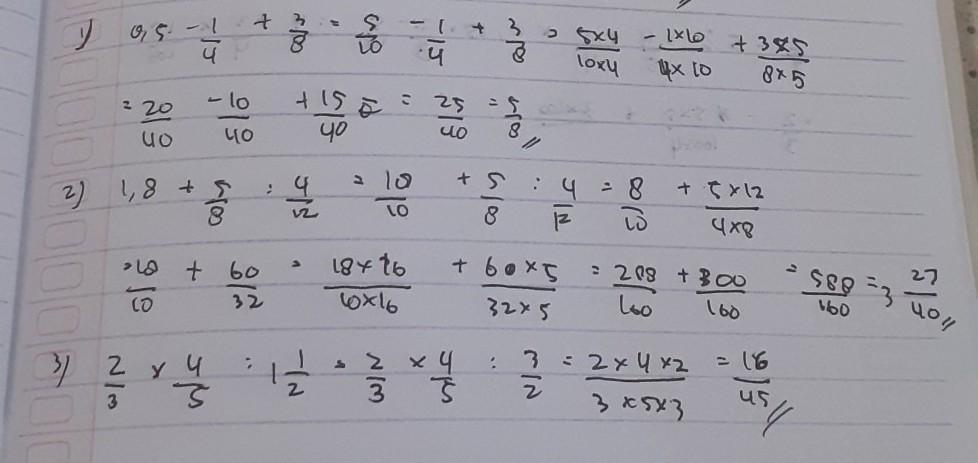 1) 0,5 - 1/4 + 3/8 = 5/10 - 1/4 + 3/8 = 5x4/10x4 - 1x10/4x10 + 3x5/8x5
= 20/40 - 10/40 + 15/40 = 25/40 = 5/8 //
2) 1,8 + 5/8 : 4/12 = 18/10 + 5/8 : 4/12 = 8/10 + 5x12/4x8
= 18/10 + 60/32 = 18x16/10x16 + 60x5/32x5 = 288/160 + 300/160 = 588/160 = 3 27/40 //
3) 2/3 x 4/5 : 1 1/2 = 2/3 x 4/5 : 3/2 = 2x4x2/3x5x3 = 16/45 //